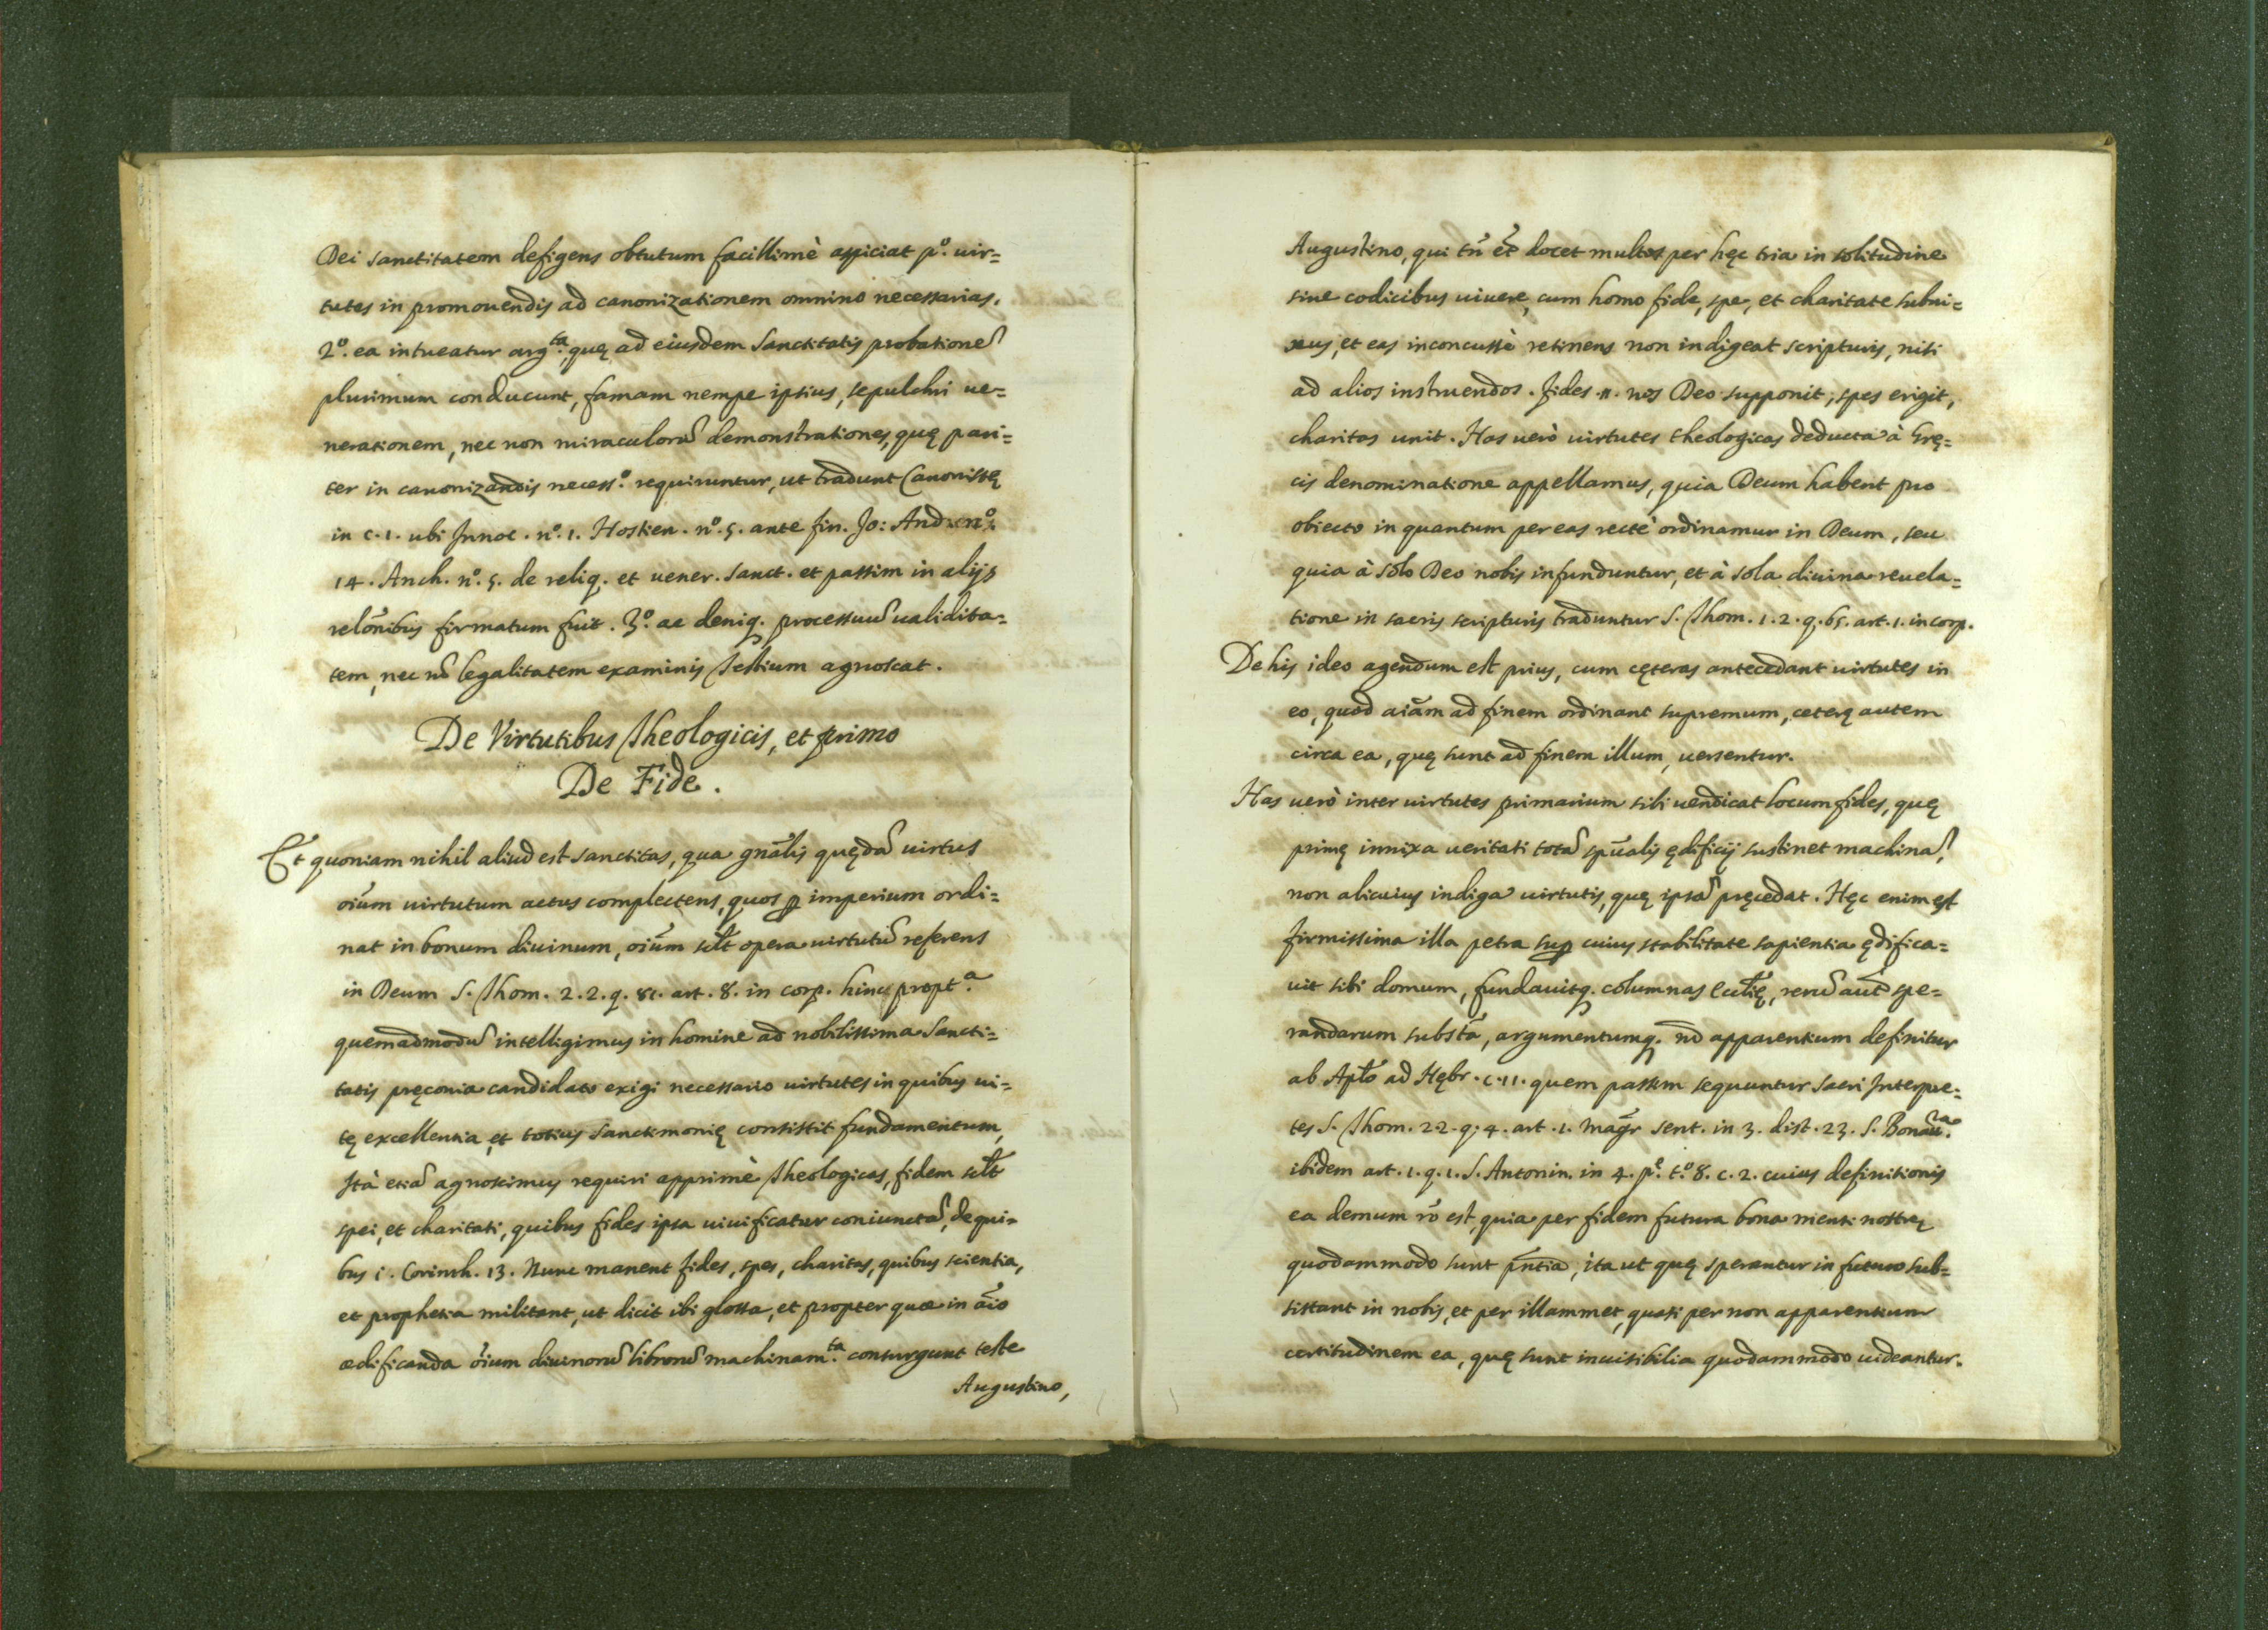 Dei sanctitatem defigens obtutum facillimè aspiciat p.º uir=
tutes in promouendis ad canonizationem omnino necessarias.
2.º ea intueatur arg.ta quę ad eiusdem Sanctitatis probationẽ
plurimum conducunt, famam nempe ipsius, sepulchri ue=
nerationem, nec non miraculorũ demonstrationes, quę pari=
ter in canonizandis necess.º requiruntur, ut tradunt Canonistę
in c. 1. ubi Innoc. n.º 1. Hostien. n.º 5. ante fin. Jo: And. n.º
14. Anch. n.º 5. de reliq. et uener. Sanct. et passim in alijs
relõnibus firmatum fuit. 3.º ac deniq. processuũ ualidita=
tem, nec nõ legalitatem examinis Testium agnoscat.
De Virtutibus Theologicis, et primo
De Fide.
Et quoniam nihil aliud est sanctitas, qua gnãlis quędã uirtus
oĩum uirtutum actus complectens, quos ꝑ imperium ordi=
nat in bonum diuinum, oĩum scĩlt opera uirtutũ referens
in Deum S. Thom. 2. 2. q. 81. art. 8. in corp. hinc propt.ª
quemadmodũ intelligimus in homine ad nobilissima Sancti=
tatis pręconia candidato exigi necessario uirtutes in quibus ui=
tę excellentia, et totius Sanctimonię consistit fundamentum,
Ità etiã agnoscimus requiri apprimè Theologicas, fidem scĩlt
spei, et charitati, quibus fides ipsa uiuificatur coniunctã, de qui=
bus 1. Corinth. 13. Nunc manent fides, spes, charitas, quibus scientia,
et prophetia militant, ut dicit ibi glossa, et propter quæ in aĩo
ædificanda oĩum diuinorũ librorũ machinam.ta consurgunt teste
Augustino,
Augustino, qui tñ et docet multos per hęc tria in solitudine
sine codicibus uiuere, cum homo fide, spe, et charitate subni=
xus, et eas inconcussè retinens non indigeat scripturis, nisi
ad alios instruendos. Fides .n. nos Deo supponit, spes erigit,
charitas unit. Has uerò uirtutes theologicas deducta à Gręs=
cis denominatione appellamus, quia Deum habent pro
obiecto in quantum per eas rectè ordinamur in Deum, seu
quia à solo Deo nobis infunduntur, et à sola diuina reuela=
tione in sacris scripturis traduntur S. Thom. 1. 2. q. 65. art. 1. in corp.
De his ideo agendum est prius, cum cęteras antecedant uirtutes in
eo, quod aiãm ad finem ordinant supremum, ceterę autem
circa ea, quę sunt ad finem illum, uersentur.
Has uerò inter uirtutes primarium sibi uendicat locum fides, quę
primę innixa ueritati totã spũalis ędificij sustinet machinã,
non alicuius indiga uirtutis, quę ipsã pręcedat. Hęc enim est
firmissima illa petra suꝑ cuius stabilitate sapientia ędifica=
uit sibi domum, fundauitq. columnas Ecclię, rerũ aut spe=
randarum substã, argumentumq. nõ apparentium definitur
ab Aplo ad Hębr. c. 11. quem passim sequuntur Sacri Interpre=
tes S. Thom. 2 2. q. 4. art. 1. Mag̃r sent. in 3. dist. 23. S. Bonau.ra
ibidem art. 1. q. 1. S. Antonin. in 4. p.e t.º 8. c. 2. cuius definitionis
ea demum rõ est, quia per fidem futura bona menti nostrę
quodammodo sunt pñtia, ita ut quę sperantur in futuro sub=
sistant in nobis, et per illammet, quasi per non apparentium
certitudinem ea, quę sunt inuisibilia quodammodo uideantur.